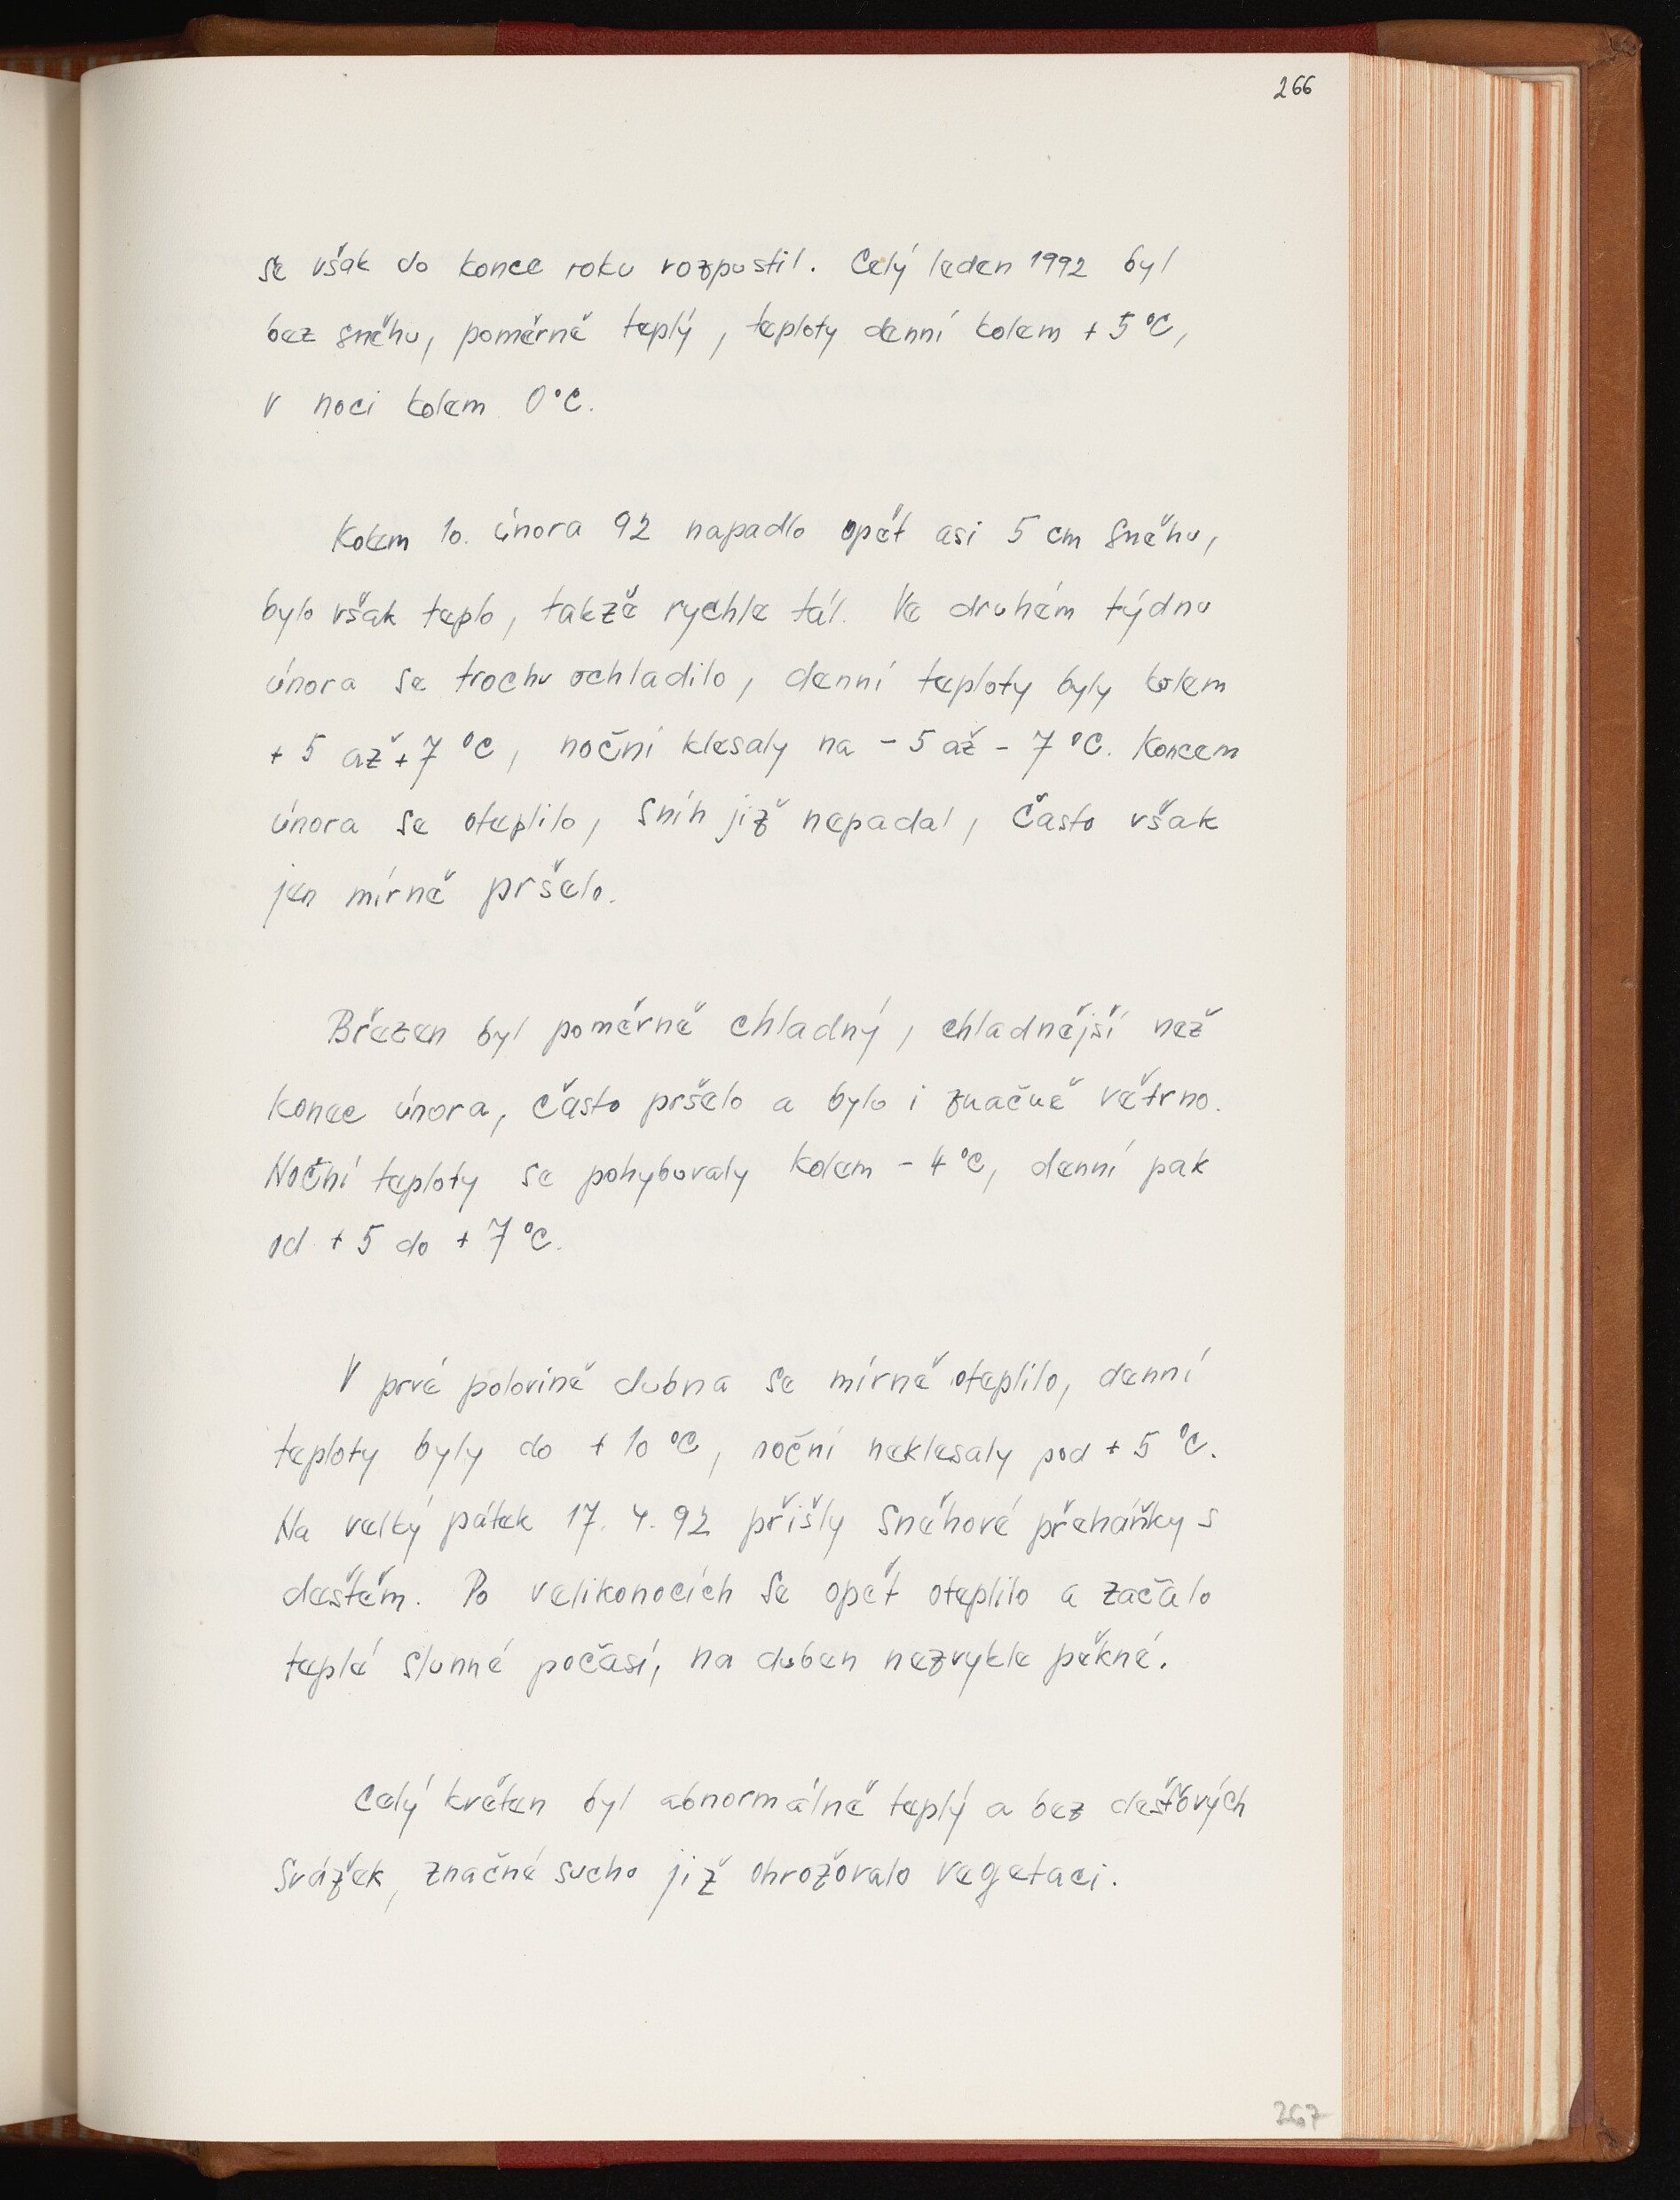 266
se však do konce roku rozpustil. Celý leden 1992 byl
bez sněhu, poměrně teplý, teploty denní kolem + 5 °C,
v noci kolem 0 °C.
Kolem 10. února 92 napadlo opět asi 5 cm sněhu,
bylo však teplo, takže rychle tál. Ve druhém týdnu
února se trochu ochladilo, denní teploty byly kolem
+ 5 až + 7 °C, noční klesaly na - 5 až - 7 °C. Koncem
února se oteplilo, sníh již nepadal, často však
jen mírně pršelo.
Březen byl poměrně chladný, chladnější než
konec února, často pršelo a bylo i značně větrno.
Noční teploty se pohybovaly kolem - 4 °C, denní pak
od + 5 do + 7 °C.
V prvé polovině dubna se mírně oteplilo, denní
teploty byly do + 10 °C, noční neklesaly pod + 5 °C.
Na velký pátek 17. 4. 92 přišly sněhové přeháňky s
deštěm. Po velikonocích se opět oteplilo a začalo
teplé slunné počasí, na duben nezvykle pěkné.
Celý květen byl abnormálně teplý a bez dešťových
srážek, značné sucho již ohrožovalo vegetaci.
267